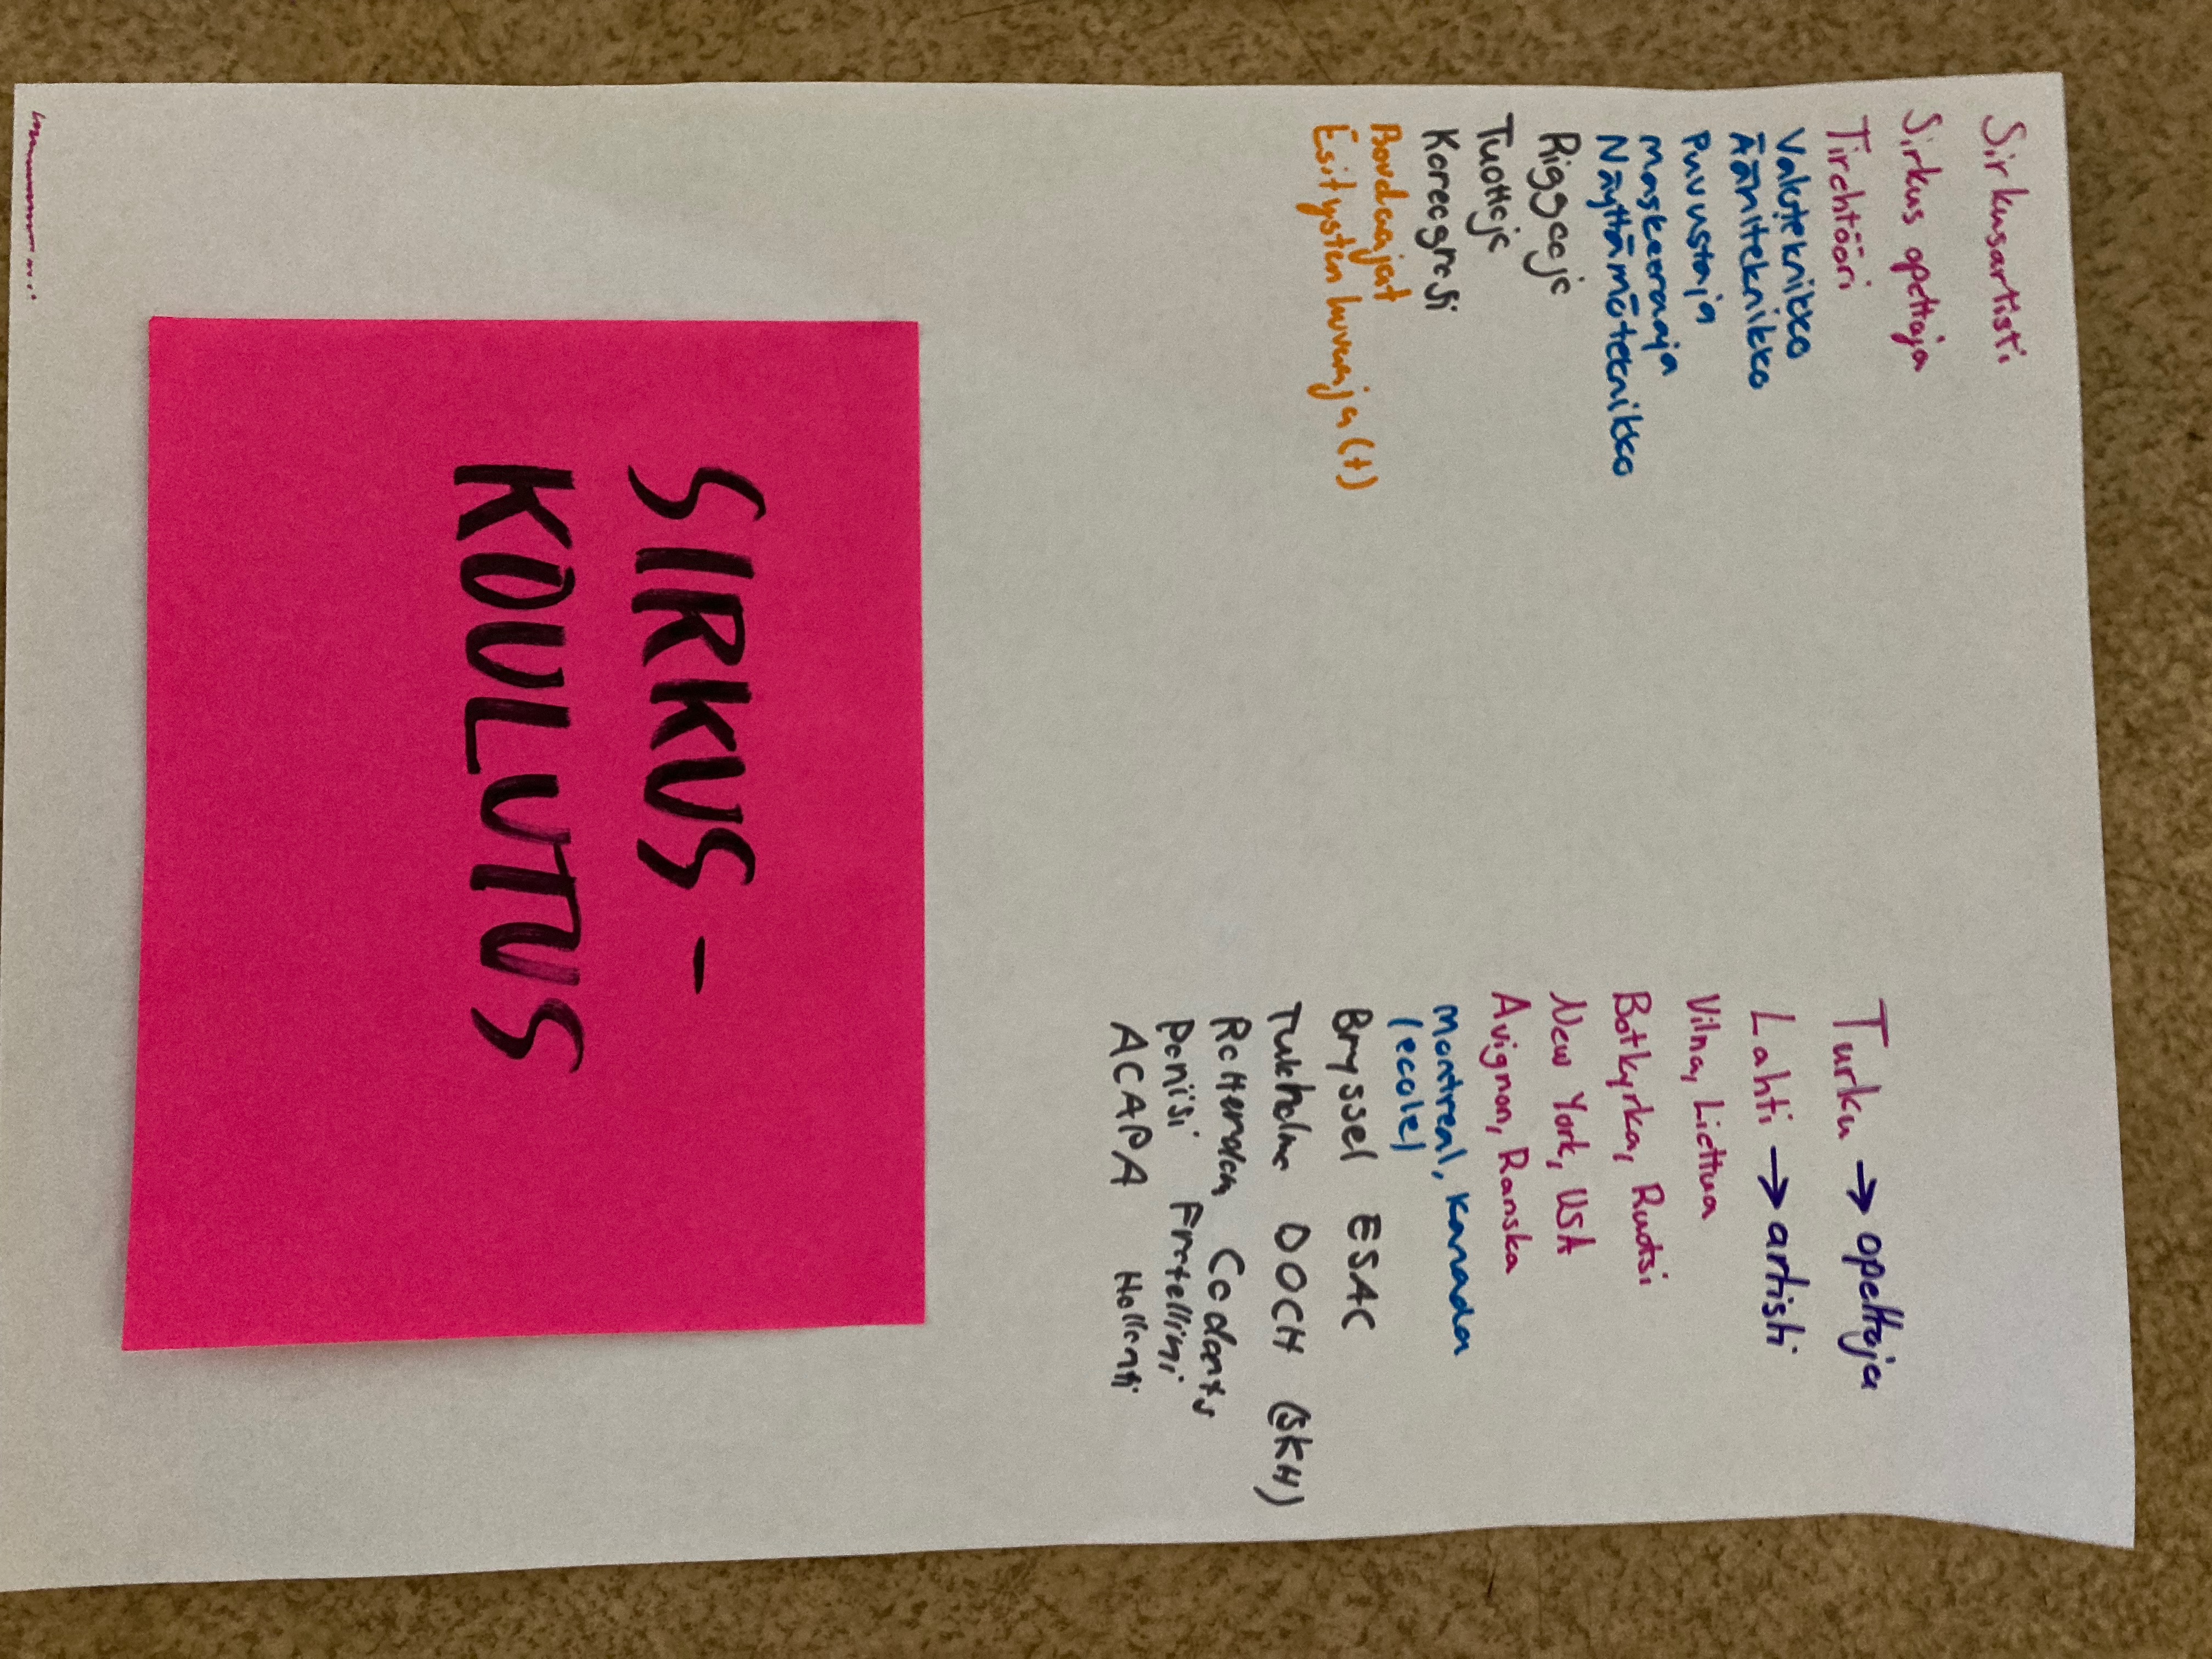 Sirkusartisti
Sirkus opettaja
Tirehtööri
Valoteknikko
Ääniteknikko
Puvustaja
Maskeeraaja
Näyttämöteknikko
Riggaaja
Tuottaja
Koreografi
Buukaajat
Esitysten kuvaaja(t)
Turku → opettaja
Lahti → artisti
Vilna, Liettua
Botkyrka, Ruotsi
New York, USA
Avignon, Ranska
Montreal, Kanada
(ecole)
Bryssel ESAC
Tukholma DOCH (SKH)
Rotterdam Codarts
Pariisi Fratellini
ACAPA Hollanti
SIRKUS-
KOULUTUS